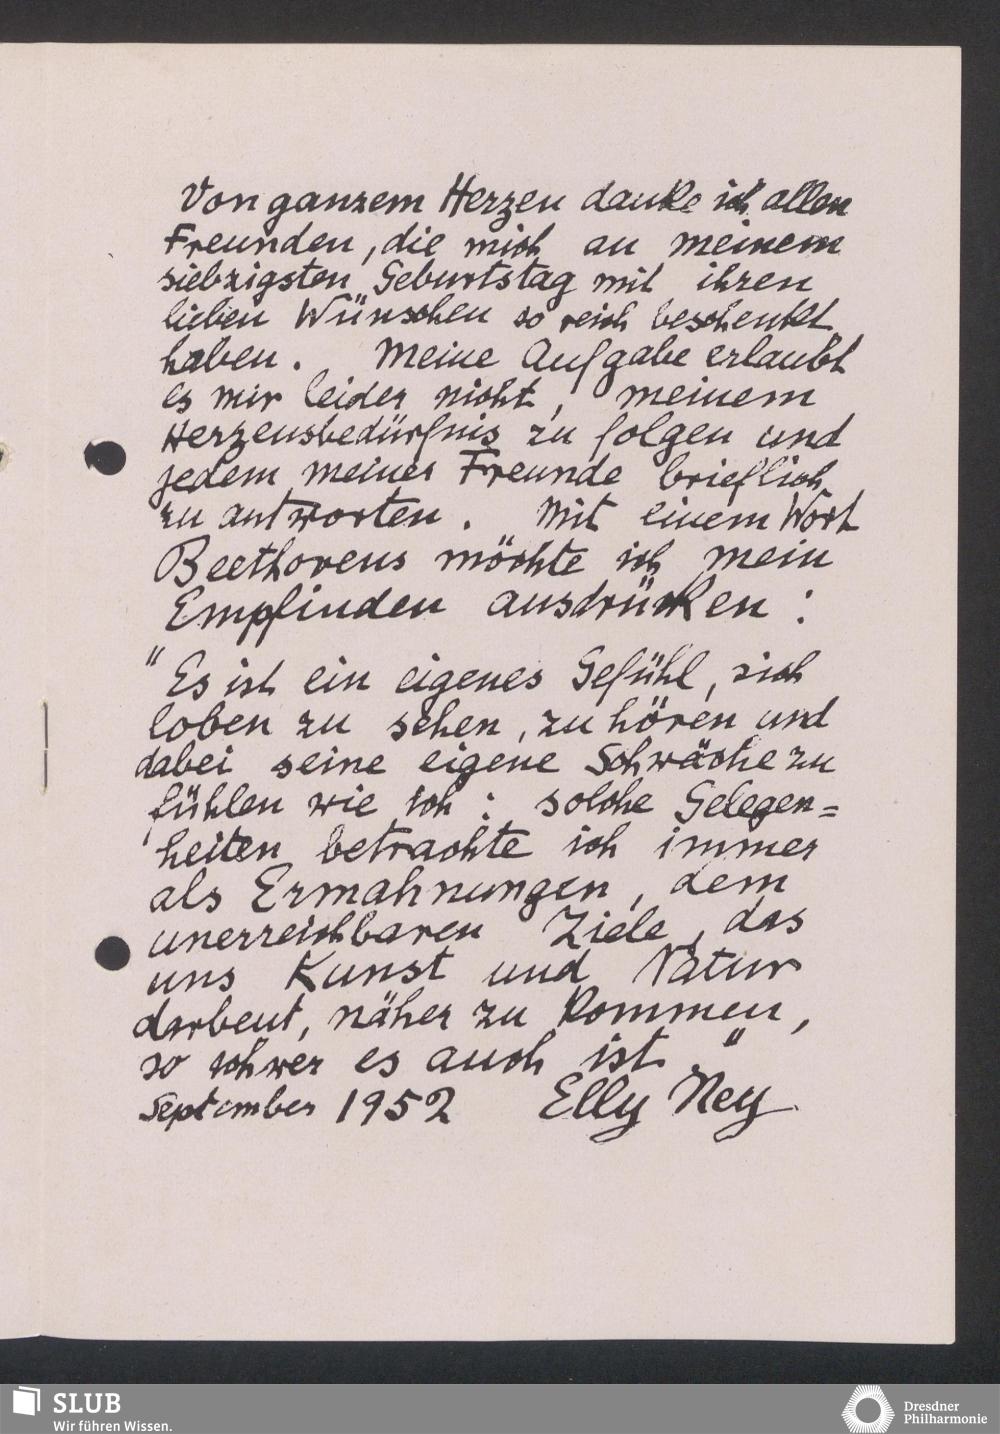 Von ganzem Herzen danke ich allen
Freunden, die mich an meinem
siebzigsten Geburtstag mit ihren
lieben Wünschen so reich beschenkt
haben. Meine Aufgabe erlaubt
es mir leider nicht, meinem
Herzensbedürfnis zu folgen und
jedem meiner Freunde brieflich
zu antworten. Mit einem Wort
Beethovens möchte ich mein
Empfinden ausdrücken:
"Es ist ein eigenes Gefühl, sich
loben zu sehen, zu hören und
dabei seine eigene Schwäche zu
fühlen wie ich: solche Gelegen=
heiten betrachte ich immer
als Ermahnungen, dem
unerreichbaren Ziele, das
uns Kunst und Natur
darbeut, näher zu kommen,
so schwer es auch ist."
September 1952 Elly Ney
SLUB
Wir führen Wissen.
Dresdner
Philharmonie